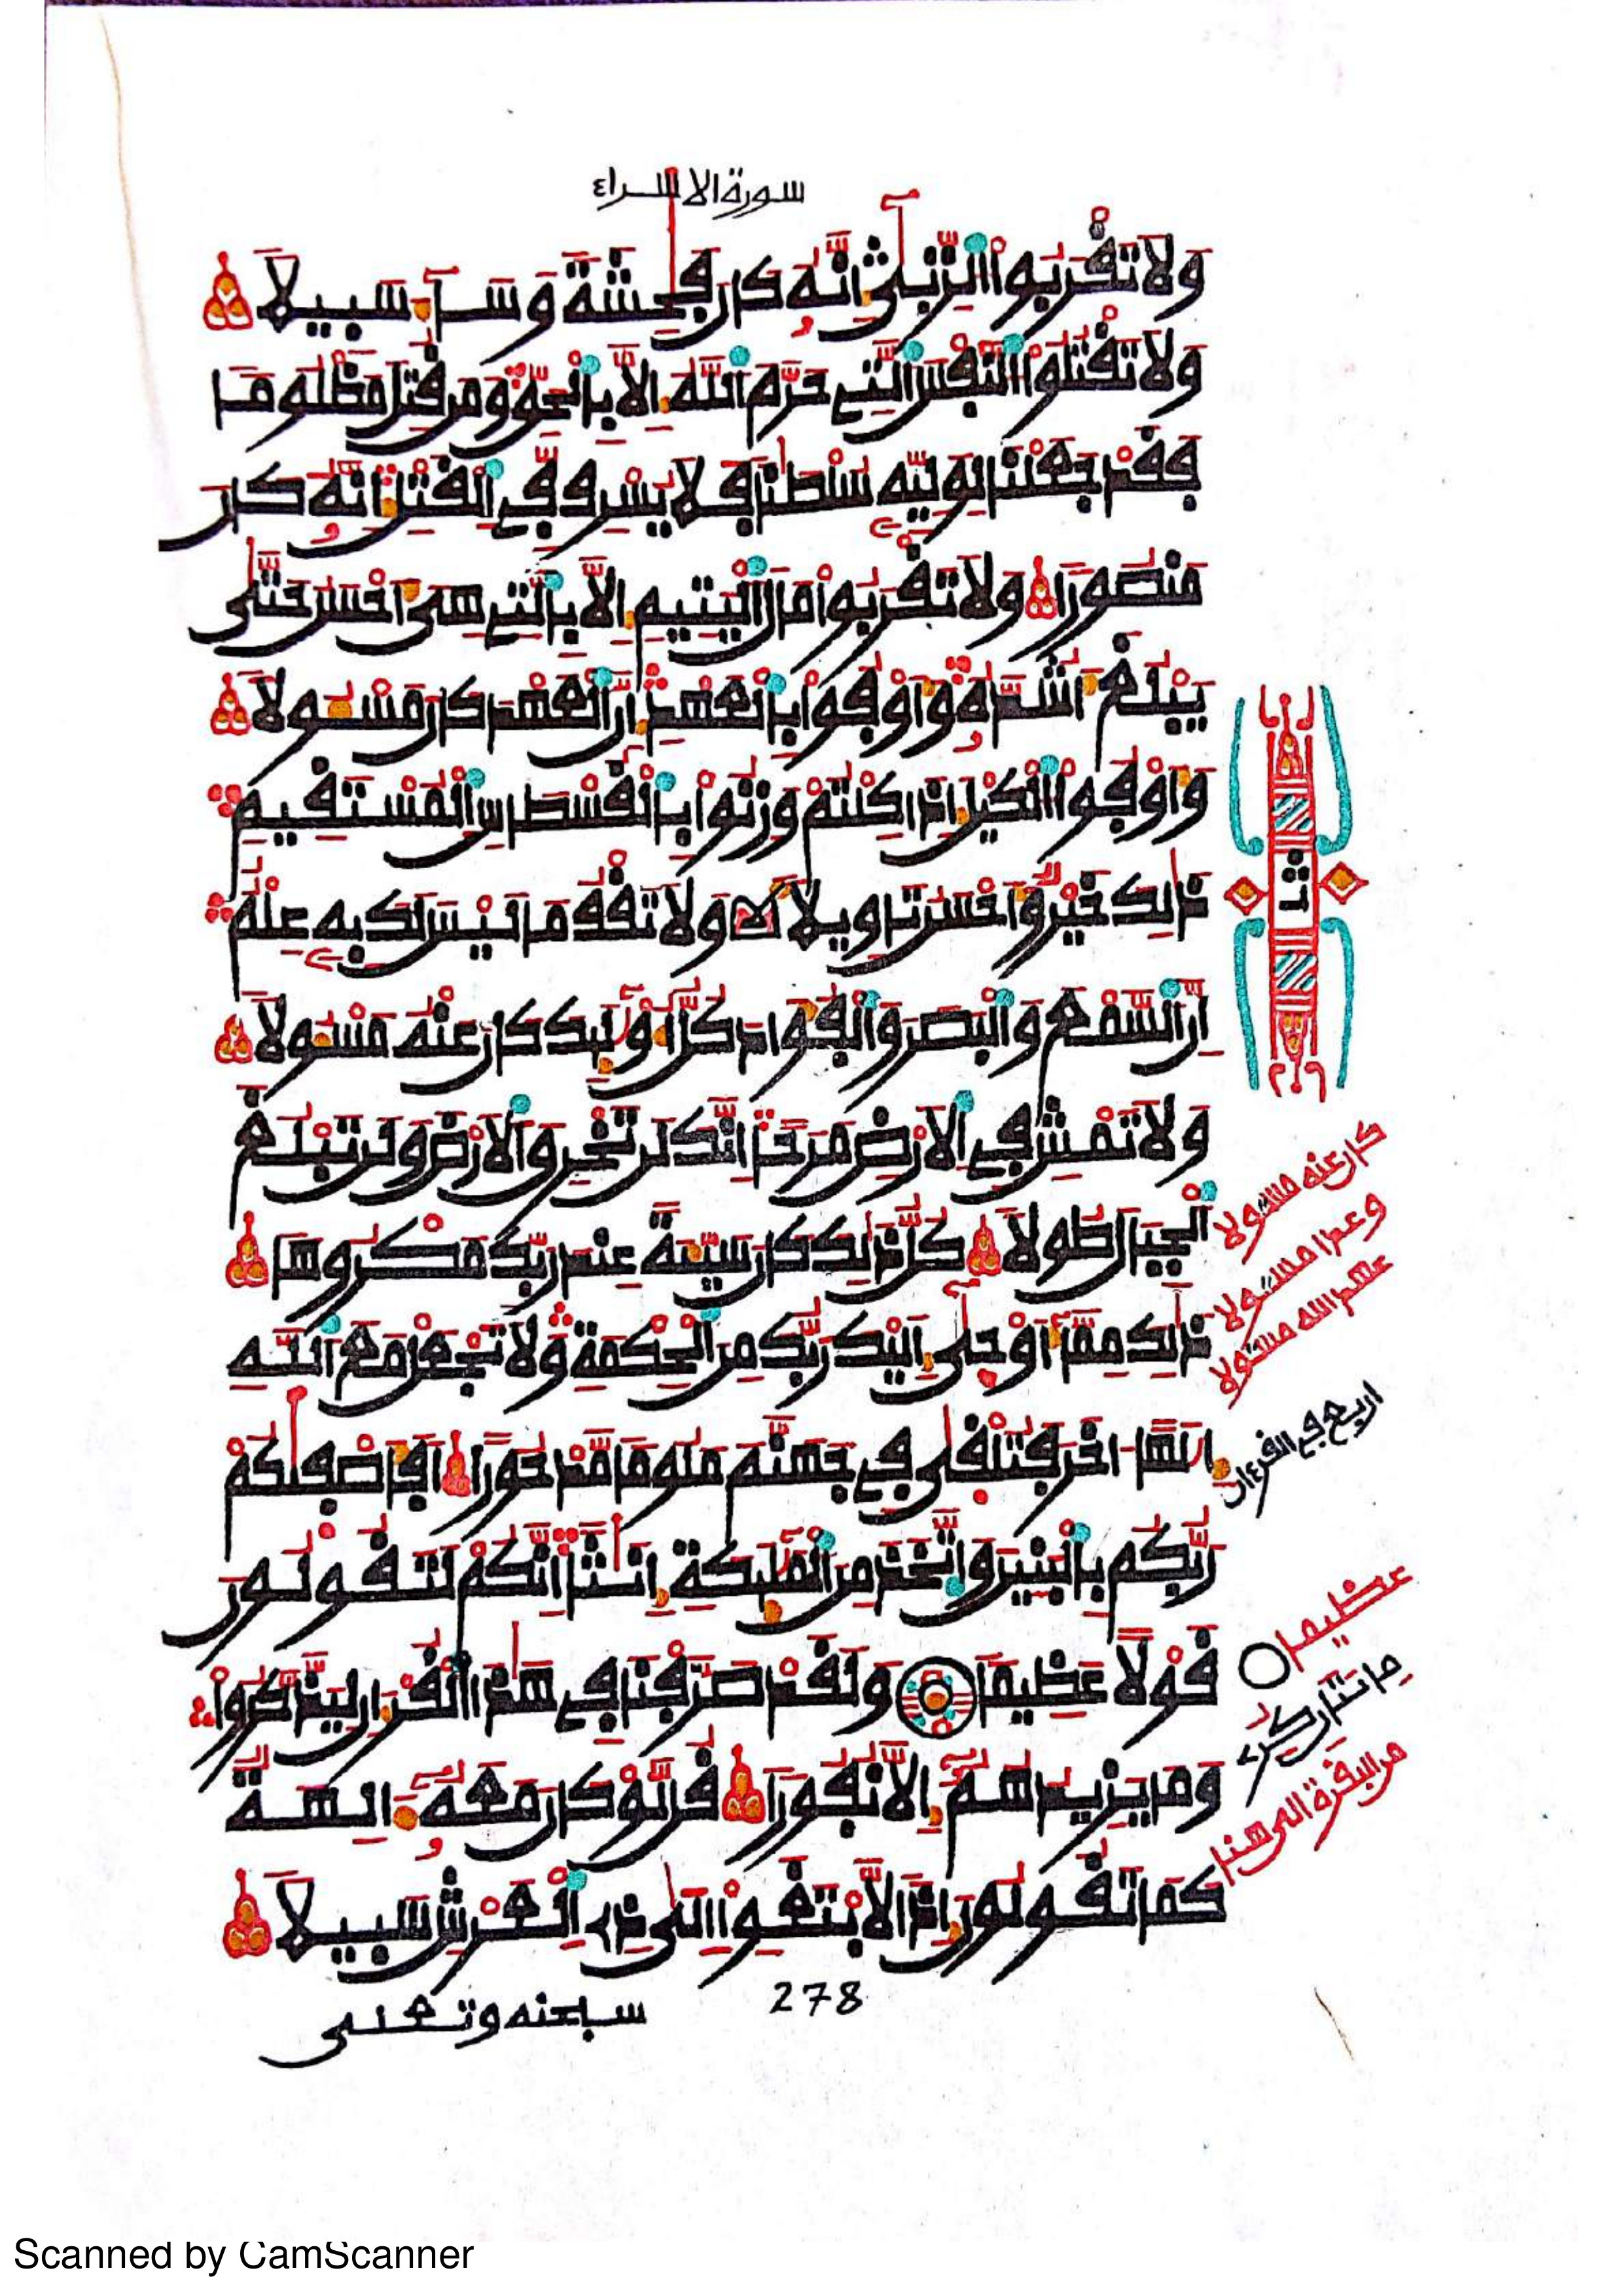 سورة الاسراء
ولا تقربوا الزنى انه كان فحشة وسآء سبيلا
ولا تقتلوا النفس التي حرم الله الا بالحق ومن قتل مظلوما
فقد جعلنا لوليه سلطنا فلا يسرف في القتل انه كان
منصورا ولا تقربوا مال اليتيم الا بالتي هي احسن حتى
يبلغ اشده واوفوا بالعهد ان العهد كان مسولا
واوفوا الكيل اذا كلتم وزنوا بالقسطاس المستقيم
ذلك خير واحسن تاويلا ولا تقف ما ليس لك به علم
ان السمع والبصر والفواد كل اوليك كان عنه مسولا
ولا تمش في الارض مرحا انك لن تخرق الارض ولن تبلغ
الجبال طولا كل ذلك كان سيية عند ربك مكروها
ذلك مما اوحى اليك ربك من الحكمة ولا تجعل مع الله
الها اخر فتلقى في جهنم ملوما مدحورا افاصفيكم
ربكم بالبنين واتخذ من المليكة انثا انكم لتقولون
قولا عظيما ولقد صرفنا في هذا القران ليذكروا
وما يزيدهم الا نفورا قل لو كان معه ءالهة
كما تقولون اذا لابتغوا الى ذي العرش سبيلا
ثمن
كان عنه مسئولا
وعدا مسئولا
عهد الله مسئولا
اربع في القرءان
عظيما
من البقرة الى هنا
278
سبحنه وتعلى
Scanned by CamScanner